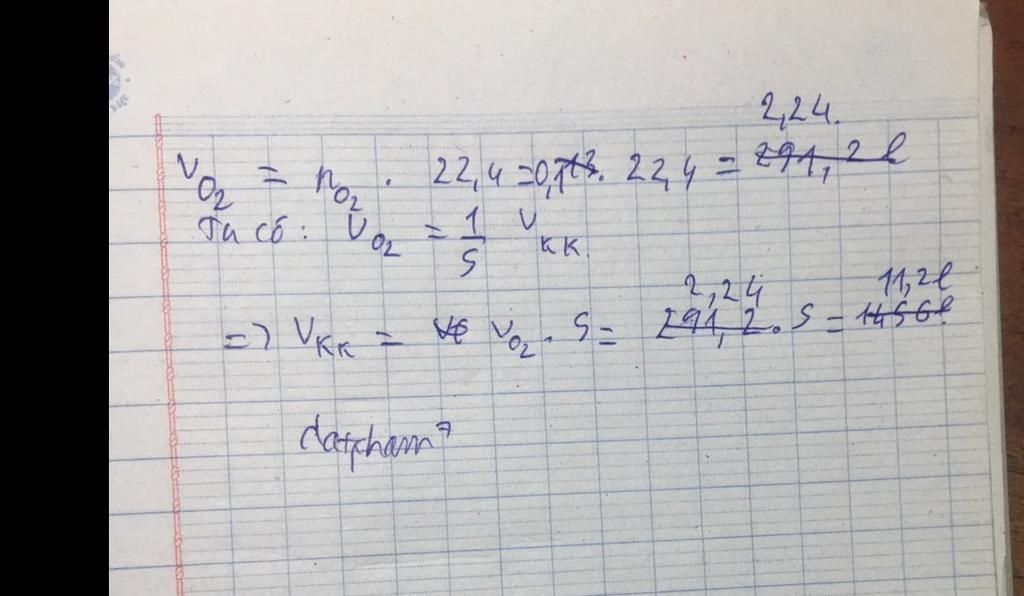 2,24.
V_O2 = n_O2 . 22,4 = 0,1 . 22,4 = 291,2 l
Ta có: V_O2 = 1/5 V_KK
2,24 11,2l
=> V_KK = V_O2 . 5 = 291,2 . 5 = 1456l
datpham7